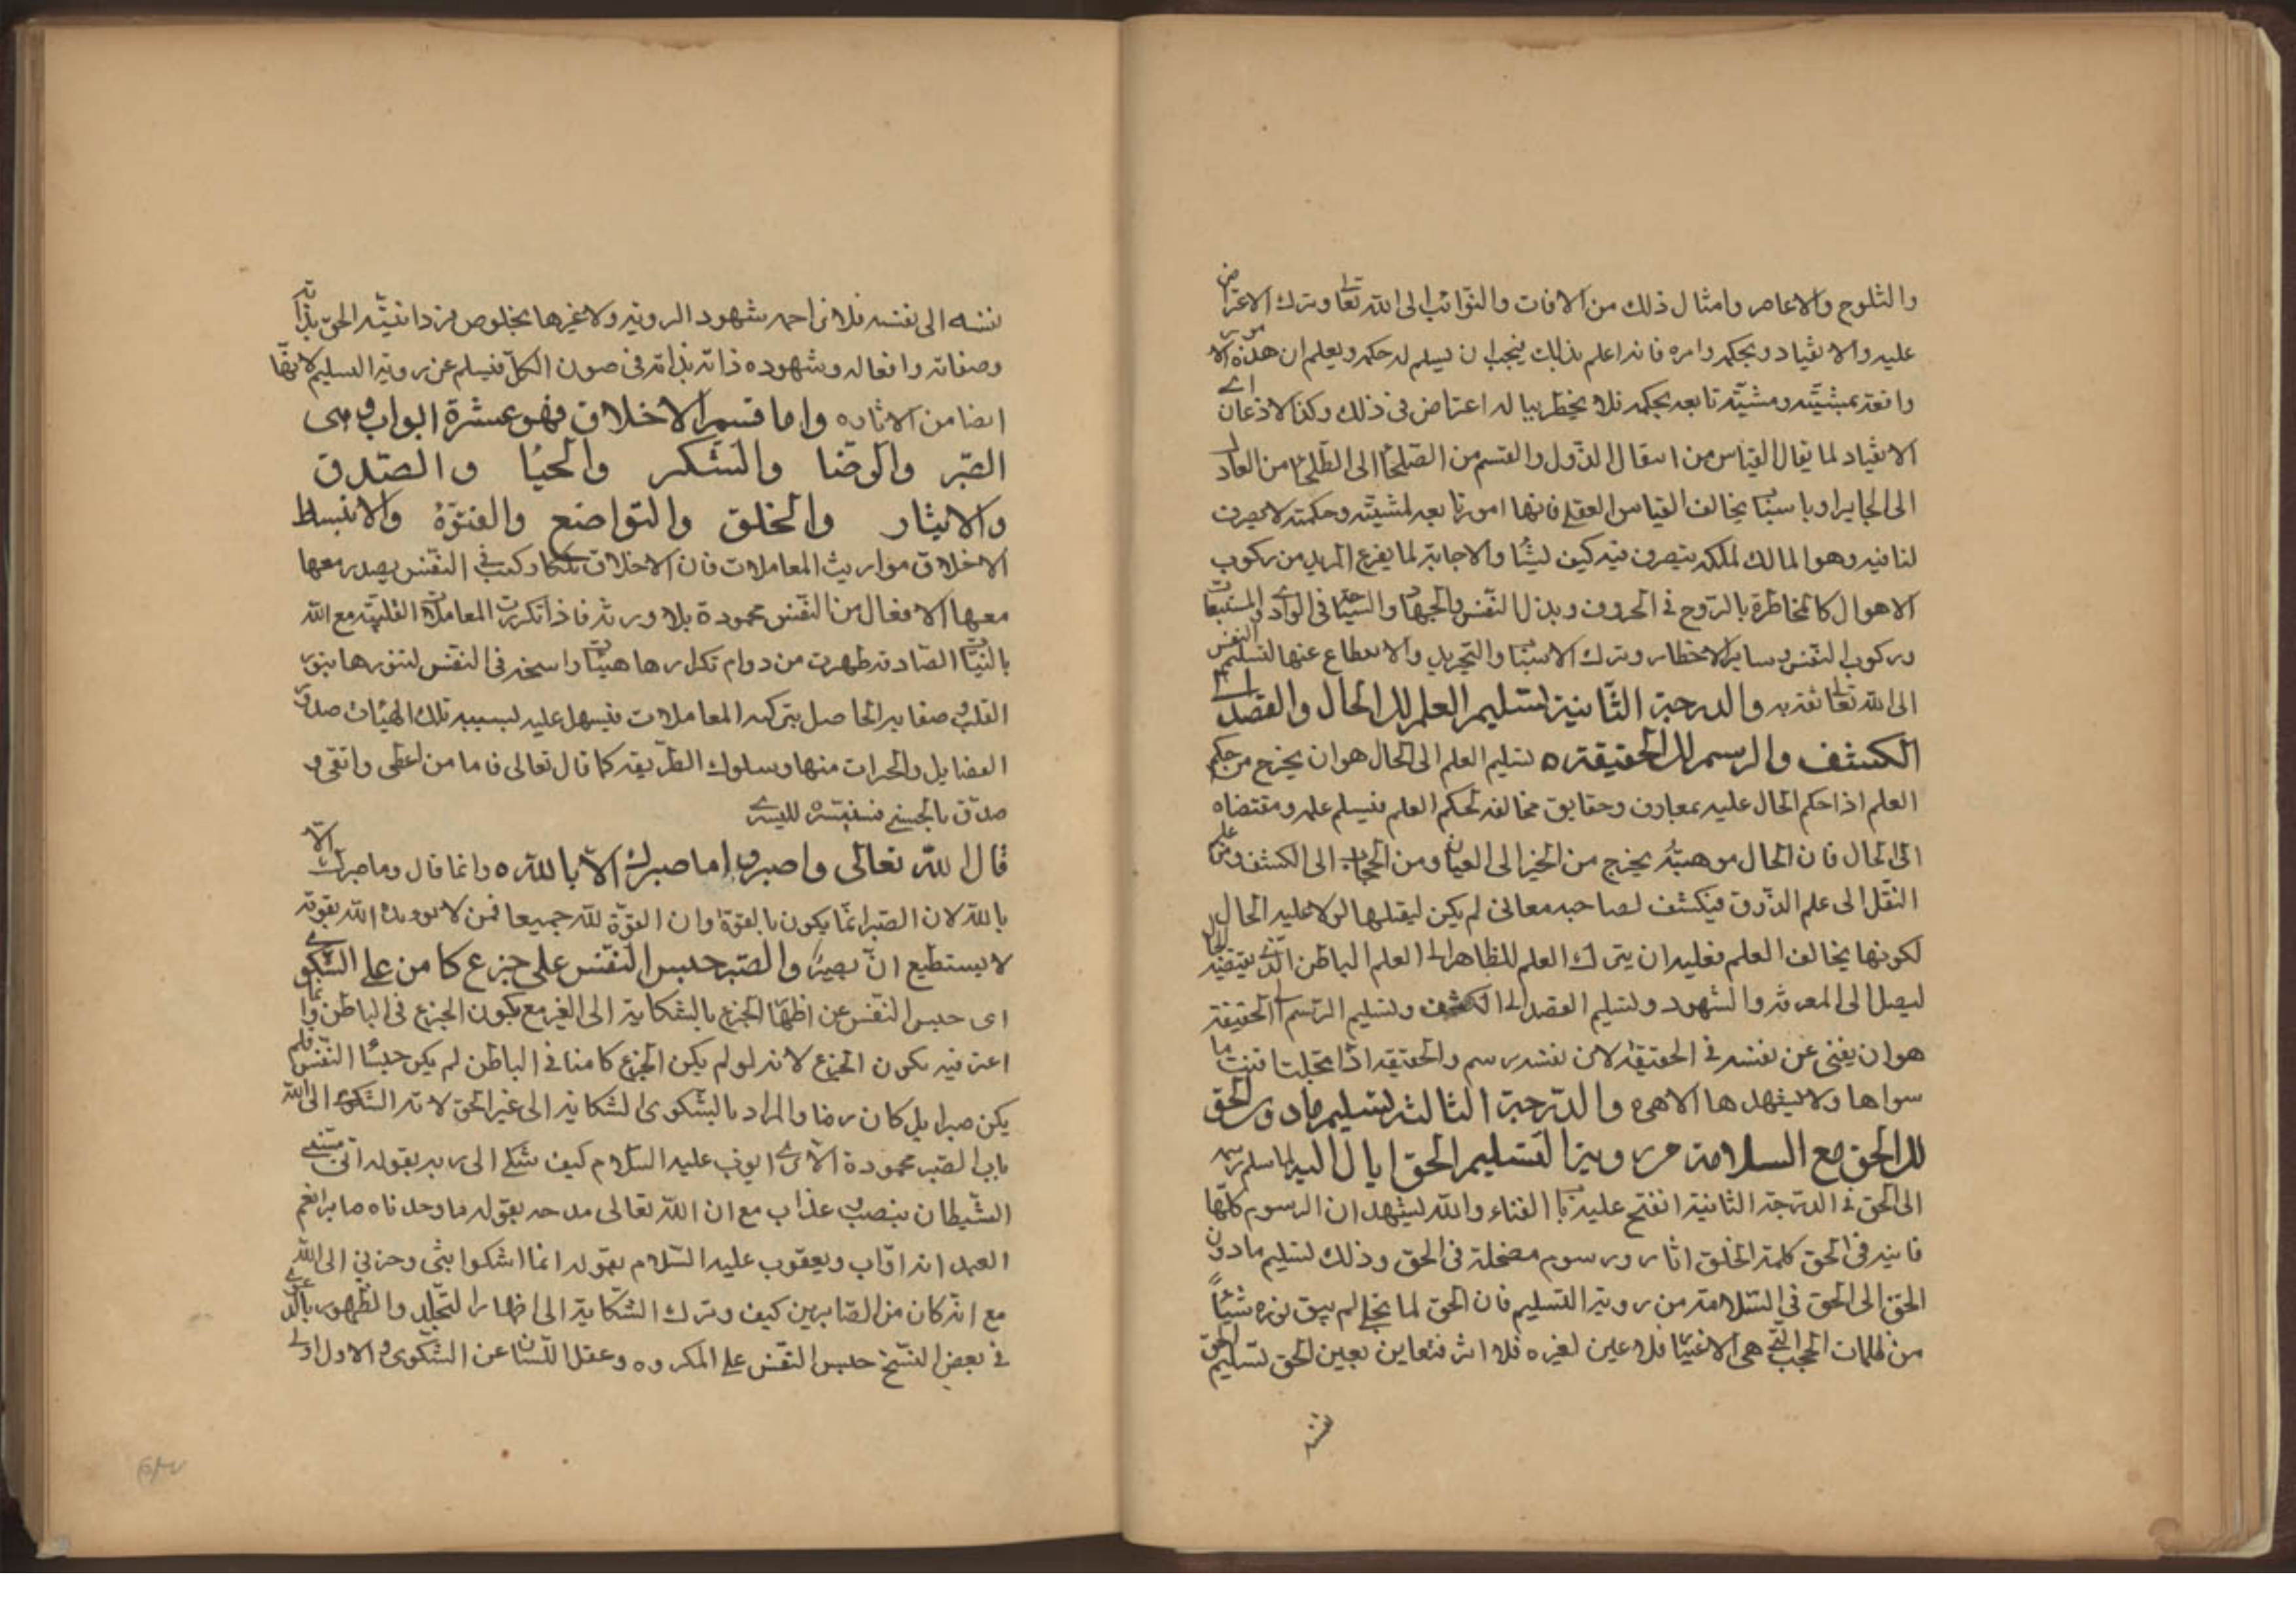 والثلوج والاعاصر وامثال ذلك من الافات والنوائب الى الله تعالى وترك الاعتراض
عليه والانقياد وبحكمه وامره فانه اعلم بذلك فيجب ان يسلم له حكمه ويعلم ان هذه الامور
واقعة بمشيته ومشيته تابعه بحكمه فلا يخطر بباله اعتراض فى ذلك وكذا الاذعان اى
الانقياد لما يقال القياس من انتقال الدول والقسم من الصلحا الى الطلحا من العادل
الى الجاير او باسباب يخالف القياس العقلى فانها امور تابعه لمشيته وحكمته لا تصرف
لنا فيه وهو المالك لملكه يتصرف فيه كيف يشا والاجابة لما يفزع المريد من ركوب
الاهوال كالمخاطرة بالروح فى الحروف وبذل النفس والجهاد والسياحة فى الوادى والمستبعات
وركوب النفس وساير الاخطار وترك الاسباب والتجريد والانقطاع عنها لتسليم النفس
الى الله تعالى ثقة به والدرجة الثانية تسليم العلم الى الحال والقصد الى
الكشف والرسم الى الحقيقة ه تسليم العلم الى الحال هو ان يخرج من حكم
العلم اذا حكم الحال عليه بمعارف وحقايق مخالفه لحكم العلم فيسلم علمه ومقتضاه
الى الحال فان الحال موهبة يخرج من الخبر الى العيان ومن الحجاب الى الكشف ومن علم
النقل الى علم الذوق فيكشف لصاحبه معانى لم يكن ليقبلها لولا غلبه الحال
لكونها يخالف العلم فعليه ان يترك العلم للظاهر الى العلم الباطن الذى يقتضيه الحال
ليصل الى المعرفة والشهود وتسليم القصد الى الكشف وتسليم الرسم الى الحقيقة
هو ان يفنى عن نفسه فى الحقيقه لان نفسه رسم والحقيقه اذا تجلت افنت ما
سواها ولا يشهدها الا هى ه والدرجة الثالثة تسليم مادون الحق
الى الحق مع السلامة من روية التسليم الحق ايال اليه لما سلم رسمه
الى الحق فى الدرجة الثانية انفتح عليه باب الفناء والله ليشهد ان الرسوم كلها
فانيه فى الحق كلمة الخلق اثار ورسوم مضمحلة فى الحق وذلك تسليم مادون
الحق الى الحق فى السلامة من روية التسليم فان الحق لما تجلى لم يبق نوره شيئاً
من ظلمات الحجب التى هى الاغيار فلا عين لغيره فلا اثر فتعاين بعين الحق تسليم الحق
نفسه
نفسه الى نفسه فلا من احد شهود الروية ولا غيرها بخلوص فردانيته الحق بذاته
وصفاته وافعاله وشهوده ذاته بذاته فى صون الكل فيسلم عن روية التسليم لانها
ايضا من الاثار ه واما قسم الاخلاق فهو عشرة ابواب وهى
الصبر والرضا والشكر والحيا والصدق
والايثار والخلق والتواضع والفتوة والانبساط
الاخلاق مواريث المعاملات فان الاخلاق ملكات فى النفس يصدر معها
معها الافعال من النفس محمودة بلا روية فاذا تكررت المعاملات القلبية مع الله
بالنيات الصادقه ظهرت من دوام تكرارها هيئات راسخه فى النفس لتنورها بنور
القلب وصفايه الحاصل بتركه المعاملات فيسهل عليه بسببه تلك الهيئات صدور
الفضايل والخيرات منها وسلوك الطريقه كما قال تعالى فاما من اعطى واتقى و
صدق بالحسنى فسنيسره لليسرى
قال الله تعالى واصبر وما صبرك الا بالله ه وانما قال وما صبرك الا
بالله لان الصبر انما يكون بالقوة وان القوة لله جميعا فمن لا يويده الله بقوته
لا يستطيع ان يصبر والصبر حبس النفس على جزع كامن على الشكوى
اى حبس النفس عن اظهار الجزع بالشكاية الى الغير مع كون الجزع فى الباطن وانما
اعتبر فيه كون الجزع لانه لو لم يكن الجزع كامنا فى الباطن لم يكن حبسا النفس فلم
يكن صبرا بل كان رضا والمراد بالشكوى الشكاية الى غير الحق لا ته الشكوى الى الله
باب الصبر محمودة الا ترى ايوب عليه السلام كيف شكى الى ربه بقوله انى مسنى
الشيطان بنصب وعذاب مع ان الله تعالى مدحه بقوله ما وجدناه صابرا نعم
العبد انه اواب ويعقوب عليه السلام بقوله انما اشكوا بثى وحزنى الى الله
مع انه كان من الصابرين كيف وترك الشكاية الى اظهار التجلد والظهور بالدعوى
فى بعض النسخ حبس النفس على المكروه وعقل اللسان عن الشكوى والاول اولى